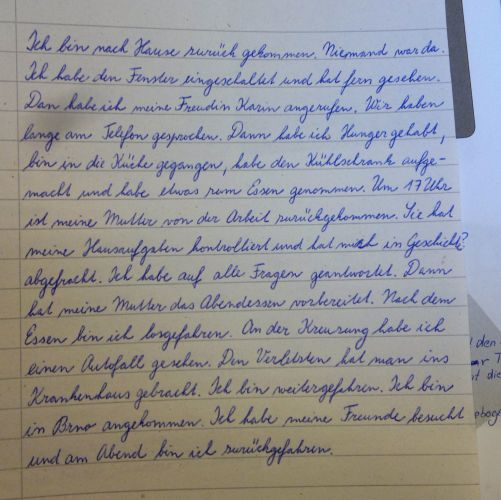 Ich bin nach Hause zurück gekommen. Niemand war da.
Ich habe den Fenster eingeschaltet und hat fern gesehen.
Dan habe ich meine Freudin Karin angerufen. Wir haben
lange am Telefon gesprochen. Dann habe ich Hunger gehabt,
bin in die Küche gegangen, habe den Kühlschrank aufge-
macht und habe etwas zum Essen genommen. Um 17 Uhr
ist meine Mutter von der Arbeit zurückgekommen. Sie hat
meine Hausaufgaben kontrolliert und hat mich in Geschichte
abgefracht. Ich habe auf alle Fragen geantwortet. Dann
hat meine Mutter das Abendessen vorbereitet. Nach dem
Essen bin ich losgefahren. An der Kreuzung habe ich
einen Autofall gesehen. Den Verletzten hat man ins
Krankenhaus gebracht. Ich bin weitergefahren. Ich bin
in Brno angekommen. Ich habe meine Freunde besucht
und am Abend bin ich zurückgefahren.
den